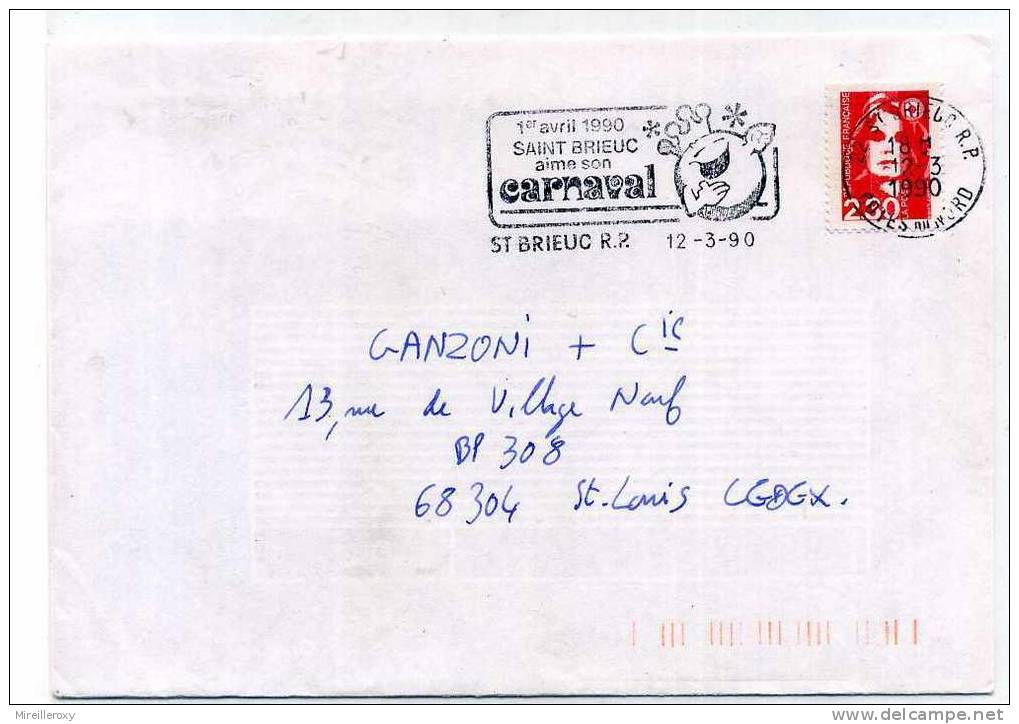 1er avril 1990
SAINT BRIEUC
aime son
carnaval
ST BRIEUC R.P. 12-3-90
RÉPUBLIQUE FRANÇAISE
LA POSTE
ST BRIEUC R.P.
18 H
12-3
1990
COTES DU NORD
GANZONI + Cie
13, rue de Village Neuf
BP 308
68304 St. Louis CEDEX.
Mireilleroxy
www.delcampe.net